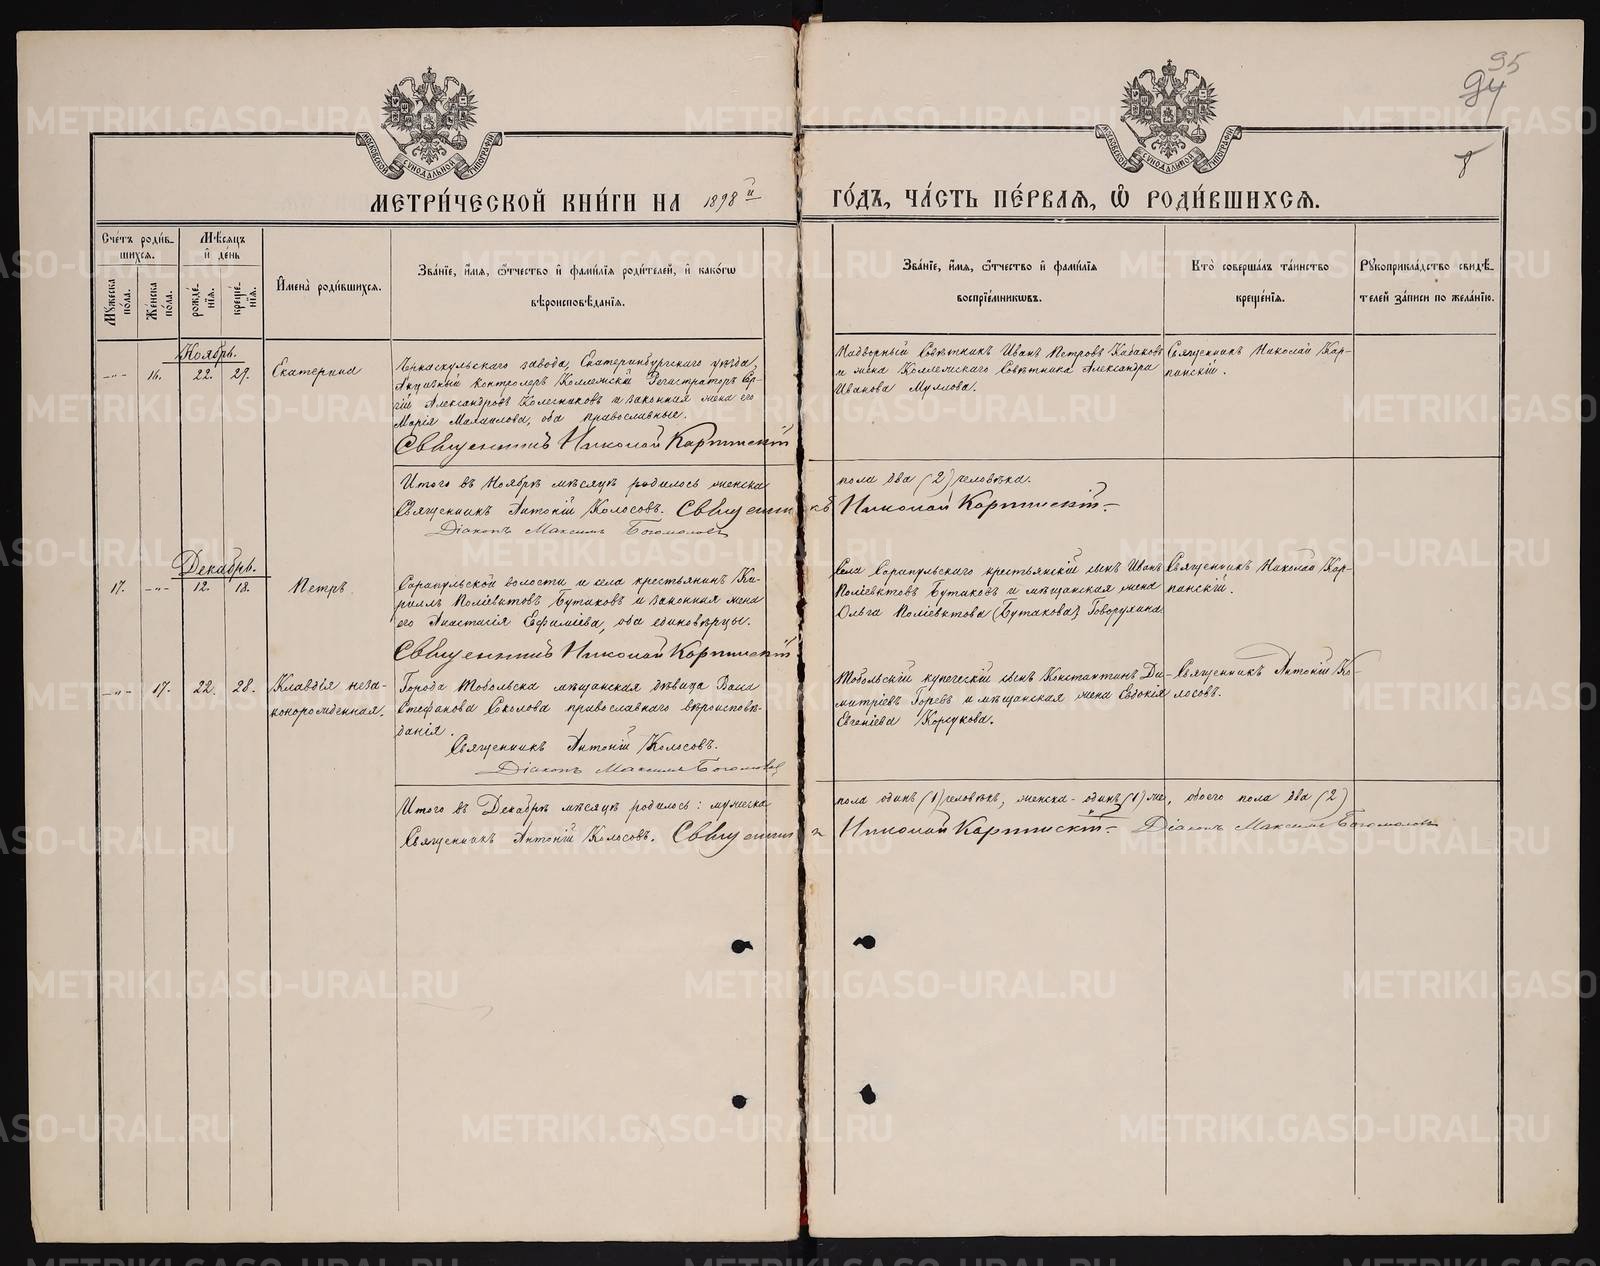 95
94
8
МЕТРИ́ЧЕСКОЙ КНИ́ГИ НА 1898й
ГО́ДЪ, ЧА́СТЬ ПЕ́РВАѦ, Ѽ РОДИ́ВШИХСѦ.
МОСКОВСКОЙ СѴНОДАЛЬНОЙ ТИПОГРАФІИ
МОСКОВСКОЙ СѴНОДАЛЬНОЙ ТИПОГРАФІИ
Сче́тъ роди́в-
шихсѧ.
Мꙋжеска по́ла.
Же́нска по́ла.
Мѣ́сѧцъ
и҆ де́нь
рожде́-
нїѧ.
креще́-
нїѧ.
И҆мена̀ роди́вшихсѧ.
Зва́нїе, и҆́мѧ, ѻ҆́тчество и҆ фами́лїѧ роди́телей, и҆ како́гѡ
вѣроисповѣ́данїѧ.
Зва́нїе, и҆́мѧ, ѻ҆́тчество и҆ фами́лїѧ
воспрїе́мникѡвъ.
Кто̀ соверша́лъ та́инство
креще́нїѧ.
Рꙋкоприкла́дство свидѣ́-
телей за́писи по жела́нїю.
Ноябрь.
-"- 16. 22. 29. Екатерина
Черкаскульскаго завода, Екатеринбургскаго уѣзда,
Акцизный контролеръ Коллежскій Регистраторъ Сер-
гій Александровъ Колесниковъ и законная жена его
Марія Михайлова, оба православные.
Священникъ Николай Карпинскій
Надворный Совѣтникъ Иванъ Петровъ Кабаковъ
и жена Коллежскаго Совѣтника Александра
Иванова Муллова.
Священникъ Николай Кар-
пинскій.
Итого въ Ноябрѣ мѣсяцѣ родилось женска
пола два (2) человѣка.
Священникъ Антоній Колосовъ. Священникъ Николай Карпинскій.
Діаконъ Максимъ Богомоловъ
Декабрь.
17. -"- 12. 18. Петръ.
Сарапульской волости и села крестьянинъ Ки-
риллъ Поліевктовъ Бутаковъ и законная жена
его Анастасія Ефимiева, оба единовѣрцы.
Священникъ Николай Карпинскій
Села Сарапульскаго крестьянскій сынъ Иванъ
Поліевктовъ Бутаковъ и мѣщанская жена
Ольга Поліевктова (Бутакова) Говорухина
Священникъ Николай Кар-
пинскій.
-"- 17. 22. 28. Клавдія неза-
конорожденная.
Города Тобольска мѣщанская дѣвица
Стефанова Соколова православнаго вѣроисповѣ-
данія.
Священникъ Антоній Колосовъ.
Діаконъ Максимъ Богомоловъ
Тобольскій купеческій сынъ Константинъ Ди-
митріевъ Горевъ и мѣщанская жена Евдокія
Евгеніева Корсукова.
Священникъ Антоній Ко-
лосовъ.
Итого въ Декабрѣ мѣсяцѣ родилось: мужеска
пола одинъ (1) человѣкъ, женска - одинъ (1) же, обоего пола два (2)
Священникъ Антоній Колосовъ. Священникъ Николай Карпинскій. Діаконъ Максимъ Богомоловъ
METRIKI.GASO-URAL.RU